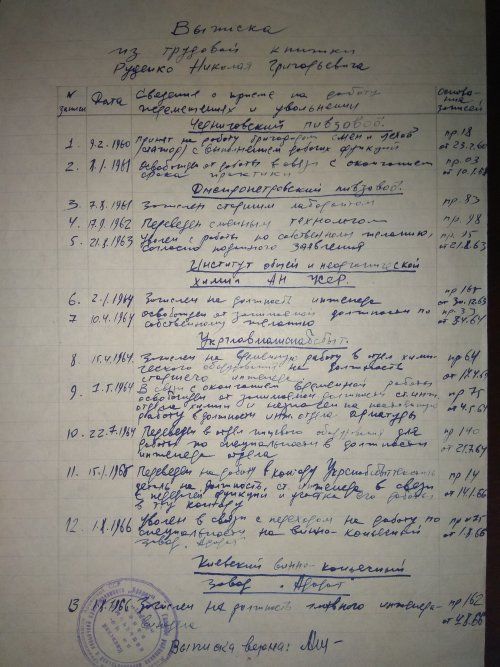 Выписка
из трудовой книжки
Руденко Николая Григорьевича
N записи Дата Сведения о приеме на работу Основа-
перемещениях и увольнении ния записей
Черниговский пивзавод.
1. 9.2.1960 Принят на работу бригадиром смен и цехов пр 18
с выполнением рабочих функций
2. 8.1.1961 Освобожден от работы в связи с окончанием пр. 03
срока практики
Днепропетровский пивзавод.
3. 7.8.1961 Зачислен старшим лаборантом пр. 83
4. 17.9.1962 Переведен сменным технологом пр. 98
5. 21.8.1963 Уволен с работы по собственному желанию, пр. 95
согласно поданного заявления от 21.8.63
Институт общей и неорганической
химии АН УССР.
6. 2.1.1964 Зачислен на должность инженера пр 165
от 30.12.63
7 10.4.1964 Освобожден от занимаемой должности по пр. 33
собственному желанию от 3.4.64
Укрглавмашснабсбыт.
8 15.4.1964. Зачислен на временную работу в отдел хими- пр 64
ческого оборудования на должность
старшего инженера от 17.4.64
9. 1.5.1964 В связи с окончанием временной работы
освобожден от занимаемой должности ст. инж. пр 75
отдела химии и назначен на постоянную от 4.5.64
работу в должности инж. отдела арматуры
10. 22.7.1964 Переведен в отдел пищевого оборудования для пр 140
работы по специальности в должности
инженера отдела от 21.7.64
11. 15.1.1966 Переведен на работу в контору пр 14
на должность ст. инженера в связи
с передачей функций и участка его работы от 14.1.66
в эту контору
12. 1.8.1966 Уволен в связи с переходом на работу по
специальности на винно-коньячный от 1.8.66
завод
Киевский винно-коньячный
завод
13. 1.8.1966 Зачислен на должность главного инженера пр 162
от 4.8.66
Выписка верна: